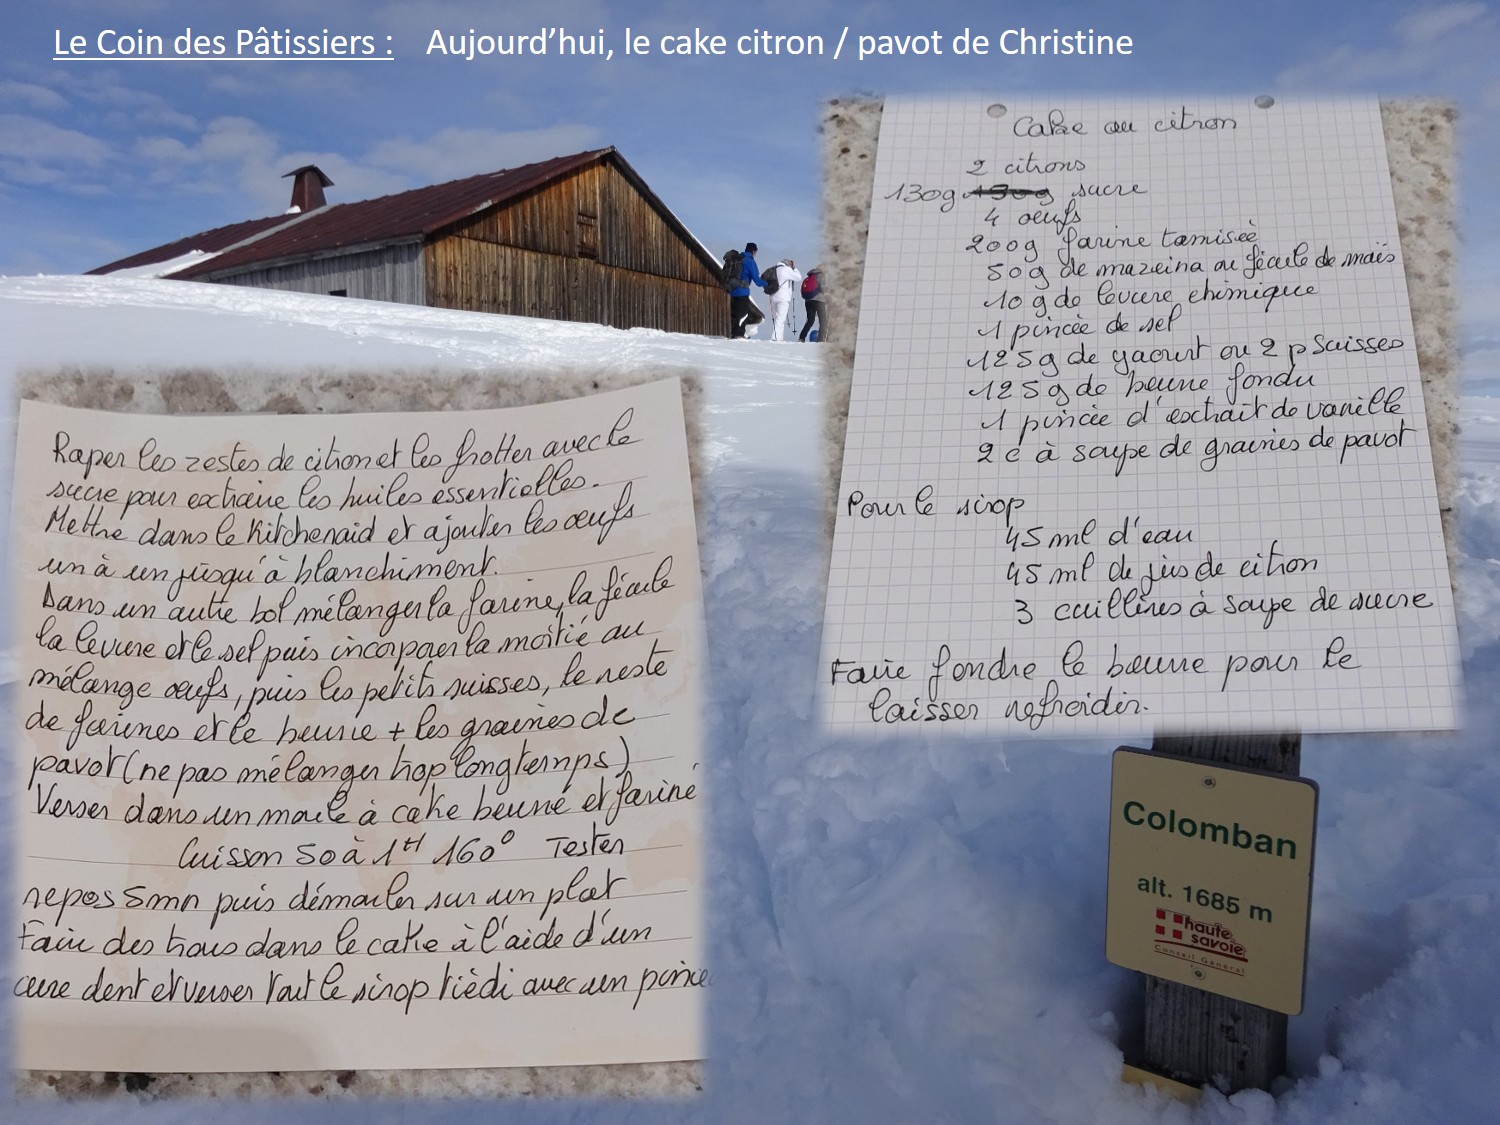 Le Coin des Pâtissiers : Aujourd'hui, le cake citron / pavot de Christine
Cake au citron
2 citrons
130g 150g sucre
4 oeufs
200g farine tamisée
50g de mazeina ou fécule de maïs
10 g de levure chimique
1 pincée de sel
125g de yaourt ou 2 p Suisses
125g de beurre fondu
1 pincée d'extrait de vanille
2 c à soupe de graines de pavot
Pour le sirop
45 ml d'eau
45 ml de jus de citron
3 cuillères à soupe de sucre
Faire fondre le beurre pour le
laisser refroidir.
Raper les zestes de citron et les frotter avec le
sucre pour extraire les huiles essentielles.
Mettre dans le Kitchenaid et ajouter les oeufs
un à un jusqu'à blanchiment.
Dans un autre bol mélanger la farine, la fécule
la levure et le sel puis incorporer la moitié au
mélange oeufs, puis les petits suisses, le reste
de farines et le beurre + les graines de
pavot (ne pas mélanger trop longtemps)
Verser dans un moule à cake beurré et fariné
Cuisson 50 à 1H 160° Tester
repos 5mn puis démouler sur un plat
Faire des trous dans le cake à l'aide d'un
cure dent et verser tout le sirop tiédi avec un pince
Colomban
alt. 1685 m
haute
savoie
Conseil Général